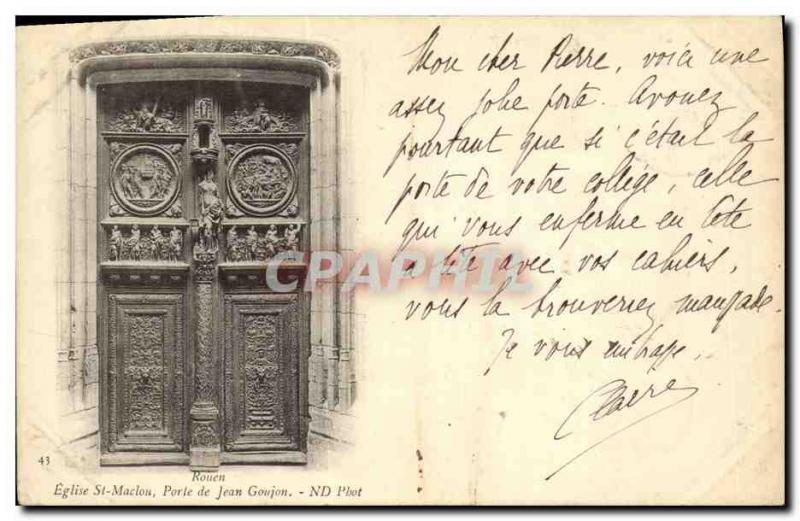 Mon cher Pierre, voici une
assez jolie porte. Avouez
pourtant que si c'était la
porte de votre collège, celle
qui vous enferme en tête
à tête avec vos cahiers,
vous la trouveriez maussade.
Je vous embrasse.
Claire
CPAPHIL
43
Rouen
Église St-Maclou, Porte de Jean Goujon. - ND Phot